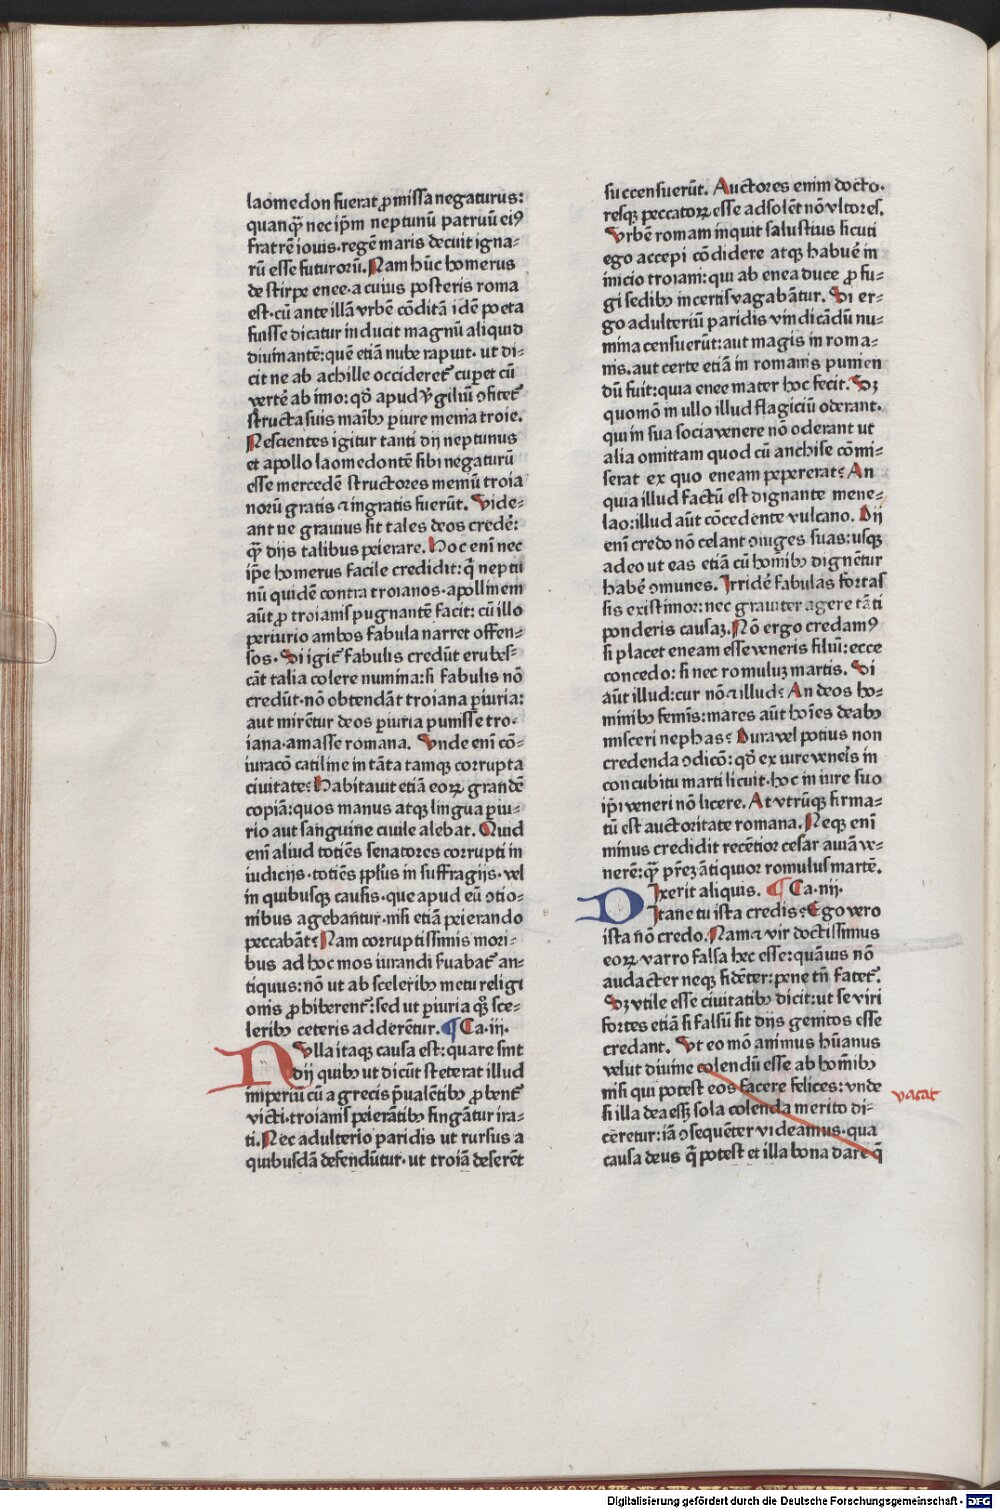 laomedon fuerat ꝓmissa negaturus:
quanqꝫ̃ nec ip̄m neptunū patruū eiꝰ
fratrē iouis·regē maris decuit igna⸗
rū esse futurorū. Nam hūc homerus
de stirpe enee·a cuius posteris roma
est·cū ante illā vrbē cōditā idē poeta
fuisse dicatur inducit magnū aliquid
diuinantē:quē etiā nube rapuit· ut di⸗
cit ne ab achille occideret᷑ cuperet cū
vertē ab imo:qđ apud v̓giliū ꝯfitet᷑
structa suis maīb⁹ ꝑiure menia troie.
Nescientes igitur tanti dij neptunus
et apollo laomedontē sibi negaturū
esse mercedē structores meniū troia
norū gratis ⁊ ingratis fuerūt. Vide⸗
ant ne grauius sit tales deos credē̓:
qꝫ̃ dijs talibus peierare. Hoc enī nec
ip̄e homerus facile credidit:q̇ neptu
nū quidē contra troianos·apollinem
aūt ꝓ troianis pugnantē facit: cū illo
periurio ambos fabula narret offen⸗
sos· Si igit᷑ fabulis credūt erubes⸗
cāt talia colere numina:si fabulis nō
credūt·nō obtendāt troiana ꝑiuria:
aut mirēt᷑ur deos ꝑiuria punisse tro·
iana·amasse romana. Vnde enī cō⸗
iuracō catiline in tāta tamqꝫ corrupta
ciuitate? Habitauit etiā eoꝝ grandē
copiā:quos manus atqꝫ lingua ꝑiu⸗
rio aut sanguine ciuile alebat. Quid
enī aliud totiēs senatores corrupti in
iudicijs·totiēs ppl̄us in suffragijs·vel
in quibusqꝫ causis·que apud eū ꝯtio⸗
nibus agebant᷑ur·nisi etiā peierando
peccabāt? Nam corruptissimis mori⸗
bus ad hoc mos iurandi s̓uabat᷑ an⸗
tiquus:nō ut ab sceleribꝰ metu religi
onis ꝓhiberent᷑:sed ut ꝑiuria qꝫ̊ sce⸗
leribꝰ ceteris adderētur. ¶ Ca·iii·
NVlla itaqꝫ causa est:quare sint
dij quibꝰ ut dicūt steterat illud
imperiū cū a grecis p̄ualētibꝰ ꝓbent᷑
victi·troianis peierātibꝰ fingātur ira⸗
ti. Nec adulterio paridis ut rursus a
quibusdā defendūtur·ut troiā deserēt
succensuerūt. Auctores enim docto·
resqꝫ peccatoꝝ esse adsolēt nō vltores.
Vrbē romam inquit salustius sicuti
ego accepi cōdidere atqꝫ habuē̓ in
inicio troiani:qui ab enea duce ꝓfu⸗
gi sedibꝰ incertis vagabātur. Si er⸗
go adulteriū paridis vindicādū nu⸗
mina censuerūt:aut magis in roma⸗
nis·aut certe etiā in romanis punien
dū fuit:quia enee mater hoc fecit. Sꝫ
quomō in ullo illud flagiciū oderant·
qui in sua socia venere nō oderant ut
alia omittam quod cū anchise cōmi⸗
serat ex quo eneam pepererat? An
quia illud factū est dignante mene⸗
lao:illud aūt cōcedente vulcano. Dij
enī credo nō celant ꝯiuges suas:usqꝫ
adeo ut eas etiā cū homībꝰ dignētur
habē̓ ꝯmunes. Irridē̓ fabulas fortas
sis existimor:nec grauiter agere tāti
ponderis causaꝫ. Nō ergo credamꝰ
si placet eneam esse veneris filiū:ecce
concedo: si nec romuluꝫ martis. Si
aūt illud:cur nō ⁊ illud? An deos ho⸗
minibꝰ femīs:mares aūt hoīes deabꝰ
misceri nephas? Dura vel potius non
credenda ꝯdicō: qđ ex iure veneīs in
concubitu marti licuit·hoc in iure suo
ip̄i veneri nō licere. At vtrūqꝫ firma⸗
tū est auctoritate romana. Neqꝫ enī
minus credidit recētior cesar auiā ve⸗
nerē:qꝫ̃ pr̄eꝫ ātiquior romulus martē.
DIxerit aliquis. ¶ Ca·iiij·
Itane tu ista credis? Ego vero
ista nō credo. Nam ⁊ vir doctissimus
eoꝝ varro falsa hec esse:quāuis nō
audacter neqꝫ fidēter:pene tn̄ fatet᷑.
Sꝫ vtile esse ciuitatibꝰ dicit:ut se viri
fortes etiā si falsū sit dijs genitos esse
credant. Vt eo mō animus hūanus
velut diuine colendū esse ab homībꝰ
nisi qui potest eos facere felices:vnde
si illa dea essꝫ sola colenda merito di⸗
ceretur:iā ꝯsequēter videamus·qua
causa deus q̇ potest et illa bona dare q̇
vacat
Digitalisierung gefördert durch die Deutsche Forschungsgemeinschaft - DFG